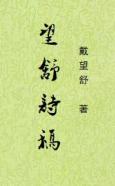 望舒詩稿
戴望舒 著